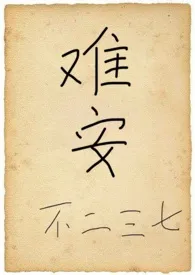 难
安
不二三七